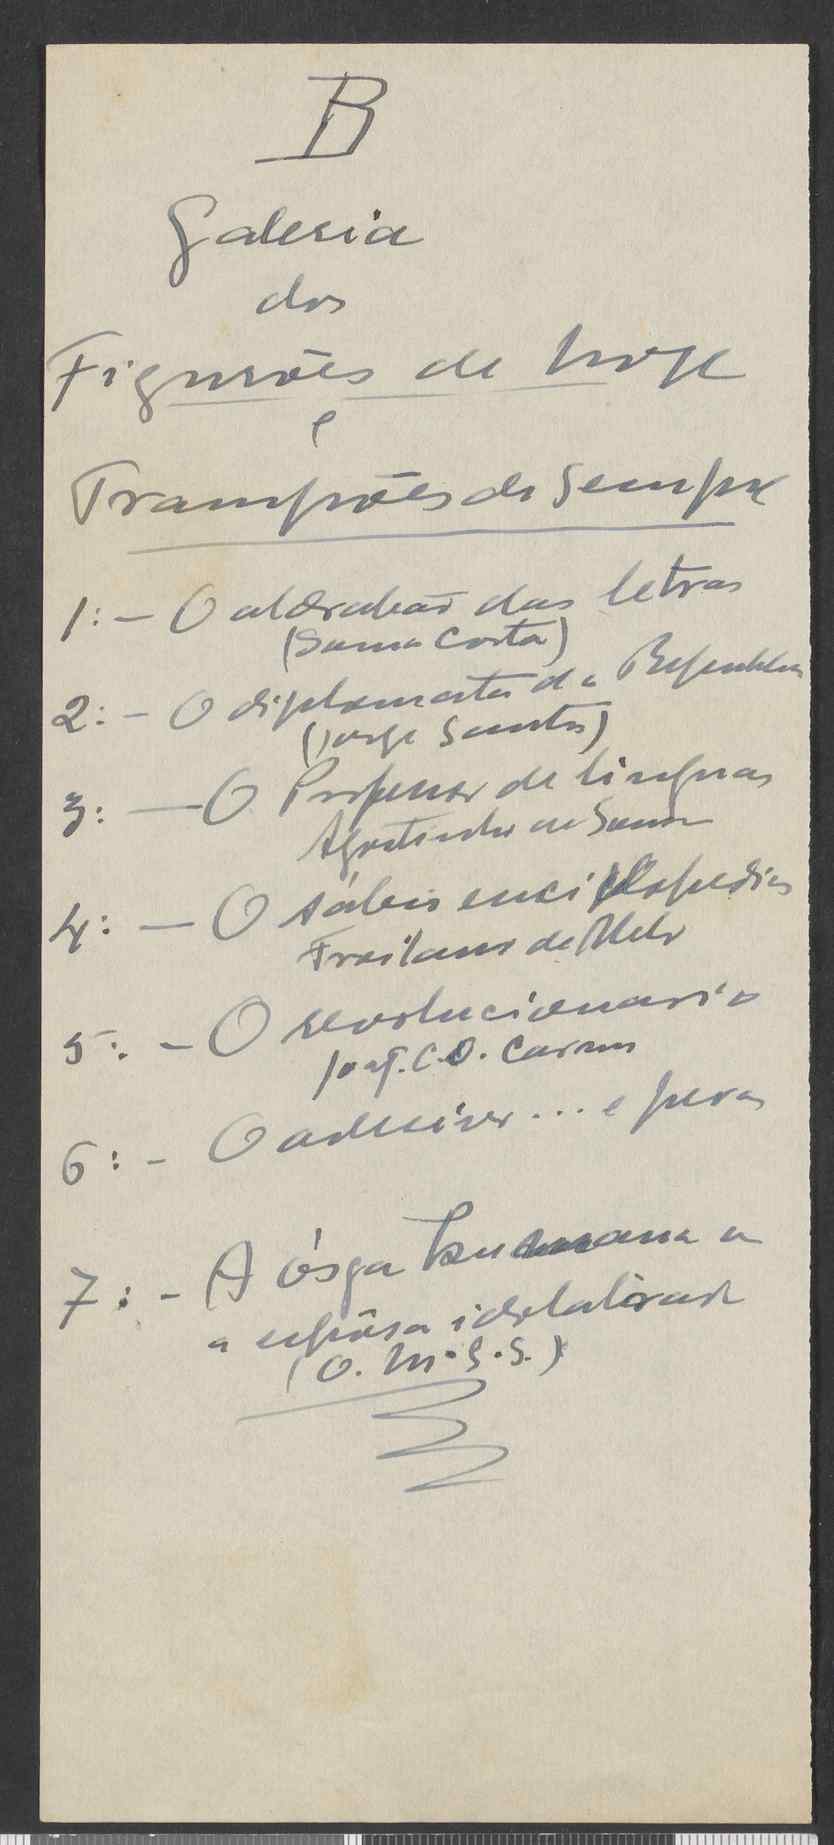 B
Galeria
dos
Figurões de hoje
e
Trampões de Sempre
1: - O aldrabão das letras
(Sousa Costa)
2: - O diplomata da Republica
(Jorge Santos)
3: - O Professor de linguas
Agostinho de Sousa
4: - O sábio enciclopedico
de Melo
5: - O revolucionario
C. O.
6: - O adesivo ... e peras
7: - A ósga humana
a espôsa idolatrada
(O. M. S. S.)